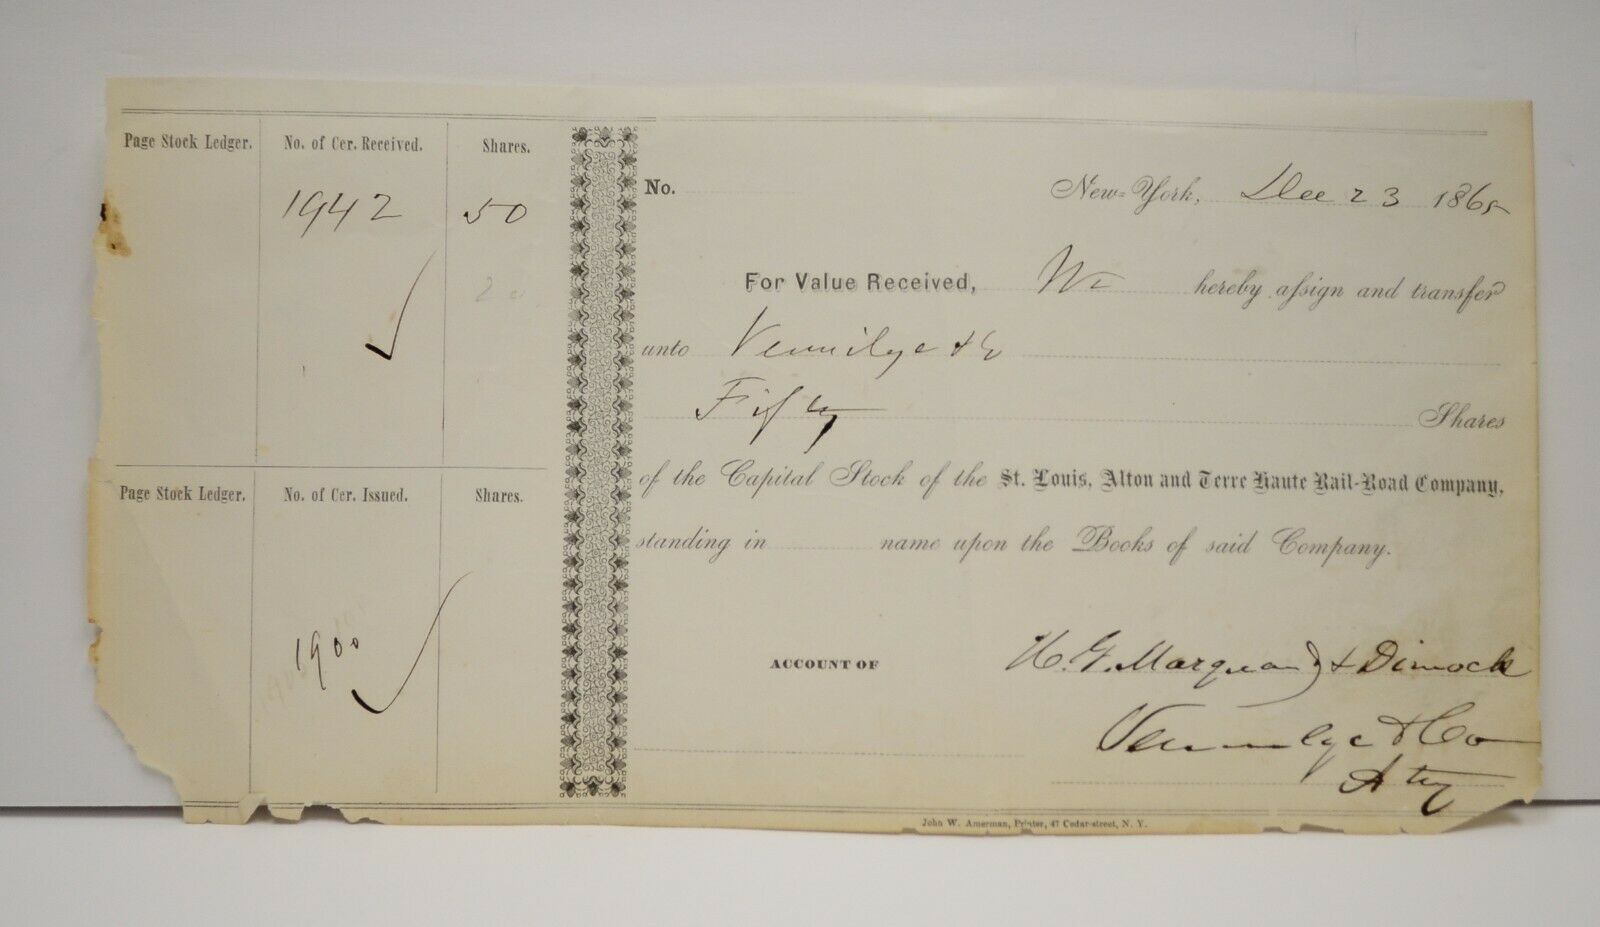 Page Stock Ledger. No. of Cer. Received. Shares.
1942 50
20
Page Stock Ledger. No. of Cer. Issued. Shares.
1900
No.
New-York, Dec 23 1865
For Value Received, We hereby assign and transfer
unto Vermilye & Co
Fifty Shares
of the Capital Stock of the St. Louis, Alton and Terre Haute Rail-Road Company,
standing in name upon the Books of said Company.
ACCOUNT OF H. G. Marquand & Dimock
Vermilye & Co
Atty
John W. Amerman, Printer, 47 Cedar-street, N. Y.